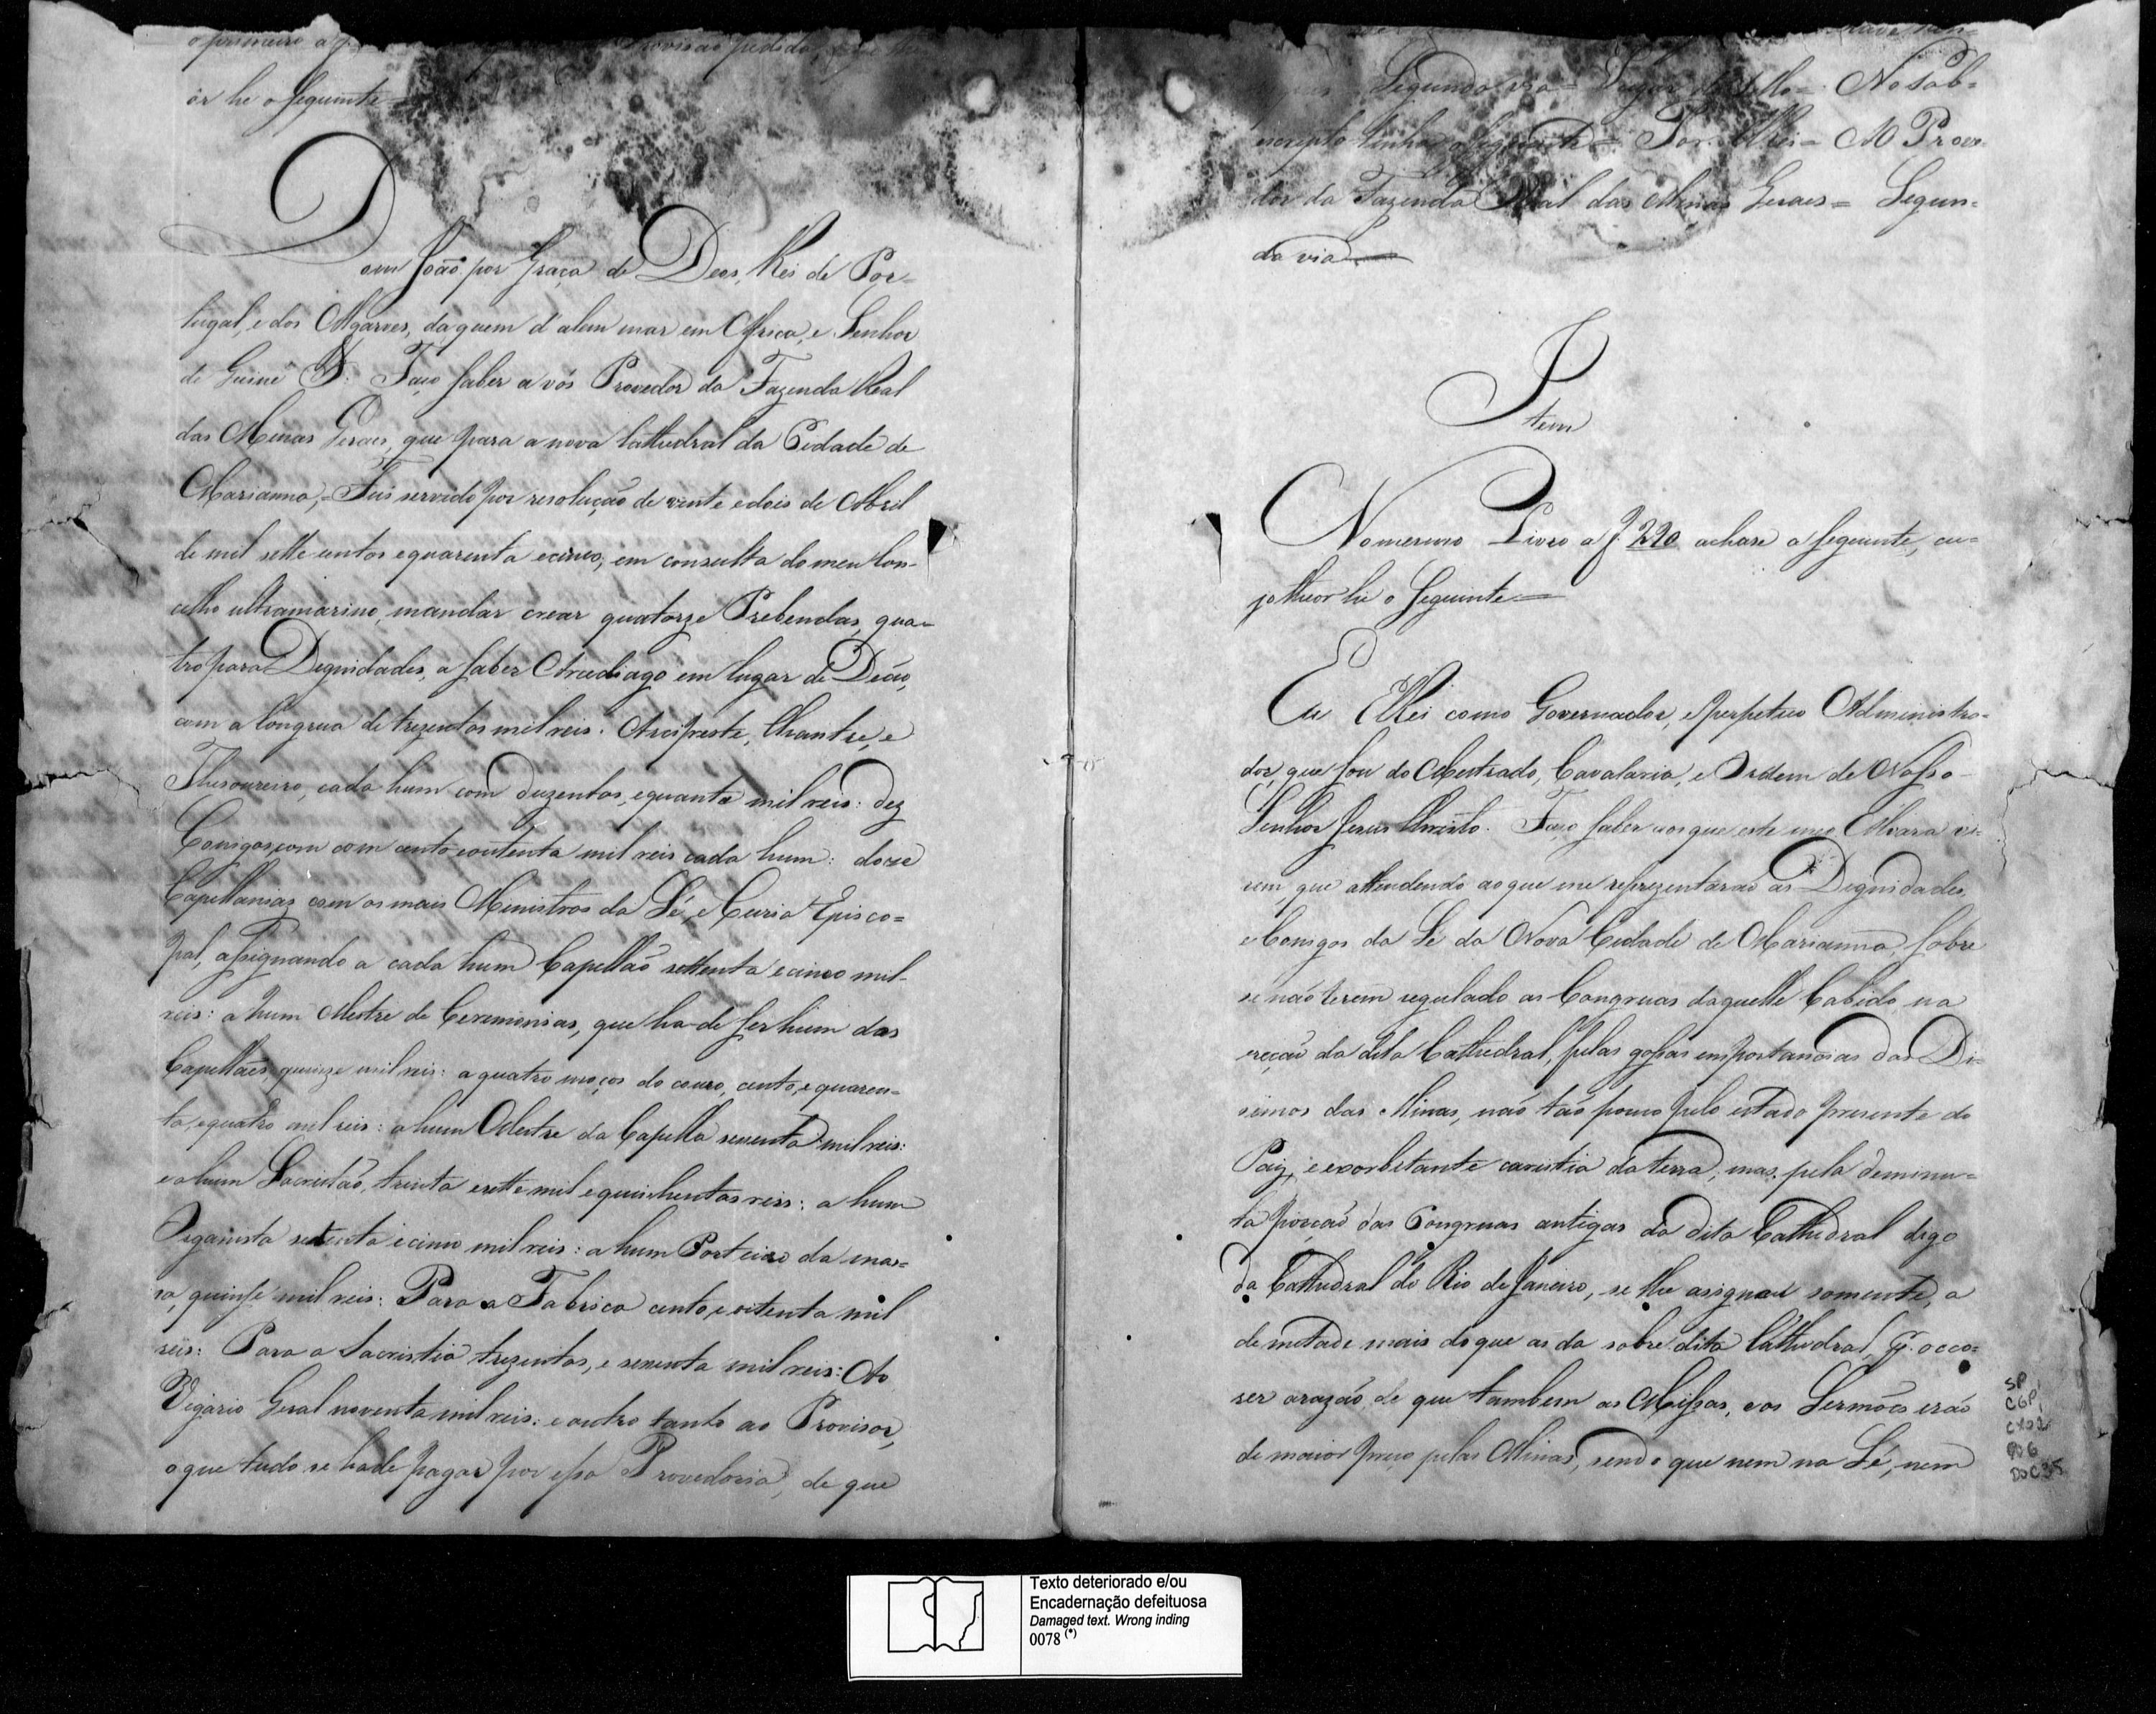 o primeiro a provisão pedida,
ôr he o seguinte
Dom João por Graça de Deos, Rei de Por-
tugal, e dos Algarves, daquem d'alem mar em Africa, e Senhor
de Guiné &: Faço saber a vós Provedor da Fazenda Real
das Minas Geraes, que para a nova Cathedral da Cidade de
Marianna, Fui servido por resolução de vinte e dois de Abril
de mil sette centos e quarenta e cinco, em consulta do meu Con-
celho ultramarino, mandar crear quatorze Prebendas, qua-
tro para Degnidades, a saber Arcediago em lugar de Deão,
com a Congrua de trezentos mil reis: Arcipreste, Chantre, e
Thesoureiro, cada hum com duzentos, e quanta mil reis: dez
Conigos com com cento e oitenta mil reis cada hum: doze
Capellanias com os mais Ministros da Sé, e Curia Episco=
pal, assignando a cada hum Capellão settenta e cinco mil
reis: a hum Mestre de Ceremonias, que ha-de ser hum dos
Capellães, quinze mil reis: a quatro moços do couro, cento, e quaren=
ta, e quatro mil reis: a hum Mestre da Capella sesenta mil reis:
e a hum Sacristão, trinta e sette mil e quinhentos reis: a hum
Organista setenta e cinco mil reis: a hum Porteiro da mas=
sa, quinse mil reis: Para a Fabrica cento, e oitenta mil
reis: Para a Sacristia trezentos, e sesenta mil reis: Ao
Vigario Geral noventa mil reis: e outro tanto ao Provisor,
o que tudo se hade pagar por essa Provedoria, de que
Segunda via = Lugar do Sello = No sob=
escripto tinha o seguinte = Por ElRei = Ao Prove-
dor da Fazenda Real das Minas Geraes = Segun=
da via
Item
No mesmo Livro a f. 220 achase o seguinte, cu=
jo theor he o seguinte =
Eu ElRei como Governador, e perpetuo Administra-
dor, que sou do Mestrado, Cavalaria, e Ordem de Nosso
Senhor Jesus Christo. Faço saber aos que este meo Alvara vi-
rem, que attendendo ao que me reprezentarão as Degnidades,
e Conigos da Sé da Nova Cidade de Marianna, sobre
se não terem regulado as Congruas daquelle Cabido, na
ereção da dita Cathedral, pelas grossas emportancias dos Di-
simos das Minas, não tão pouco pelo estado presente do
Paiz, e exorbetante carestia da terra; mas, pela deminu=
ta porção das Congruas antigas da dita Cathedral digo
da Cathedral do Rio de Janeiro, se lhe asignou somente, a
de metade mais do que as da sobre dita Cathedral, q.
ser arazão de que tambem as Missas, e os Sermões erão
de maior preço pelas Minas, sendo que nem na Sé, nem
SP
CGP,
CX02
DOC35
Texto deteriorado e/ou
Encadernação defeituosa
Damaged text. Wrong inding
0078 (*)